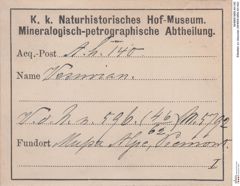 K. k. Naturhistorisches Hof-Museum.
Mineralogisch-petrographische Abtheilung.
Acq.-Post A. h. 140
Name Vesuvian.
V. d. h. n. 596.
Fundort Mussa Alpe, Piemont.
I